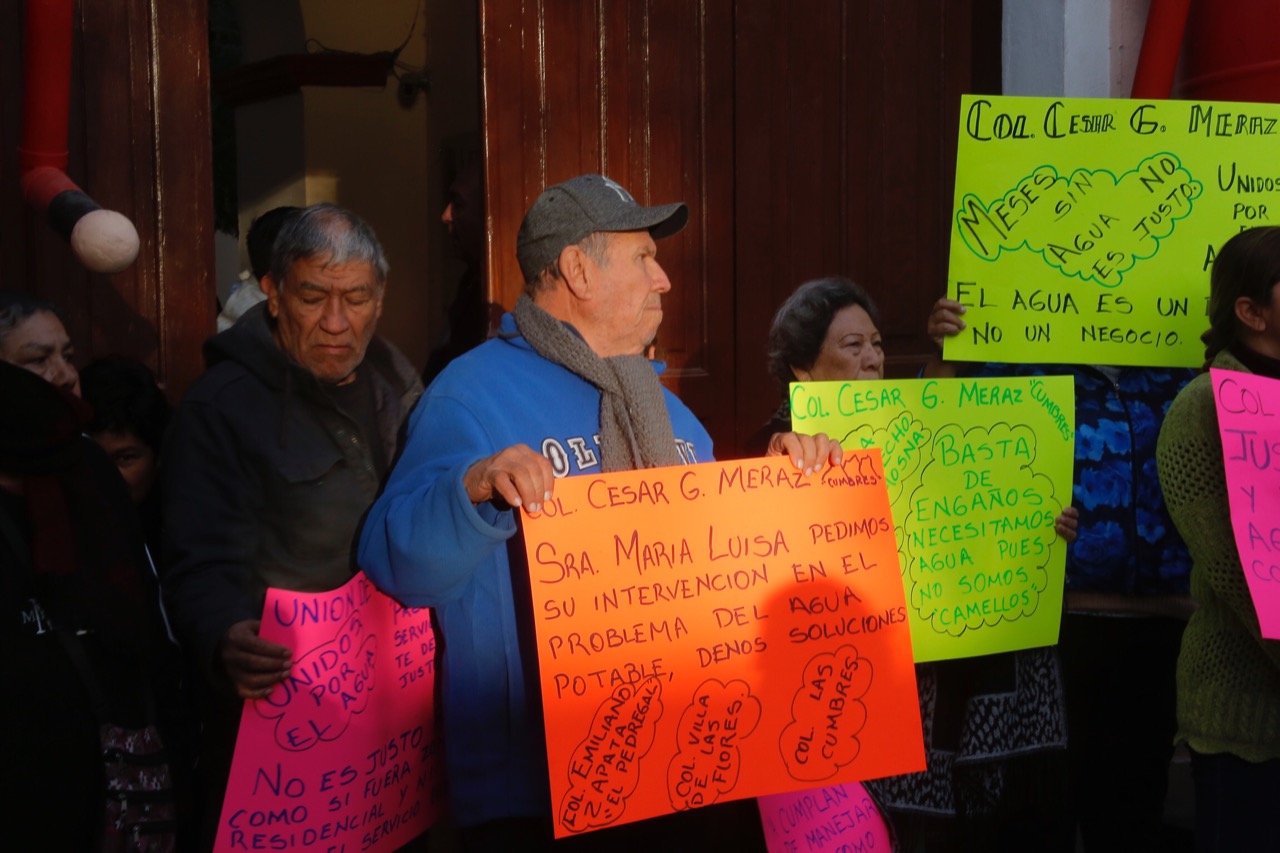 COL. CESAR G. MERAZ
MESES SIN
AGUA NO
ES JUSTO.
UNIDOS
POR
EL AGUA ES UN
NO UN NEGOCIO.
COL CESAR G. MERAZ "CUMBRES"
BASTA
DE
ENGAÑOS
NECESITAMOS
AGUA PUES
NO SOMOS,
"CAMELLOS"
COL. CESAR G. MERAZ "CUMBRES"
SRA. MARIA LUISA PEDIMOS
SU INTERVENCION EN EL
PROBLEMA DEL AGUA
POTABLE, DENOS SOLUCIONES
COL. EMILIANO
ZAPATA
"EL PEDREGAL
COL. VILLA
DE LAS
FLORES.
COL LAS
CUMBRES
UNION DE
UNIDOS
POR
EL AGUA
SERVIC
TE DE
JUST
NO ES JUSTO
COMO SI FUERA
RESIDENCIAL Y
EL SERVICIO
CUMPLAN
DE MANEJAR
COMO
COL
JUS
Y